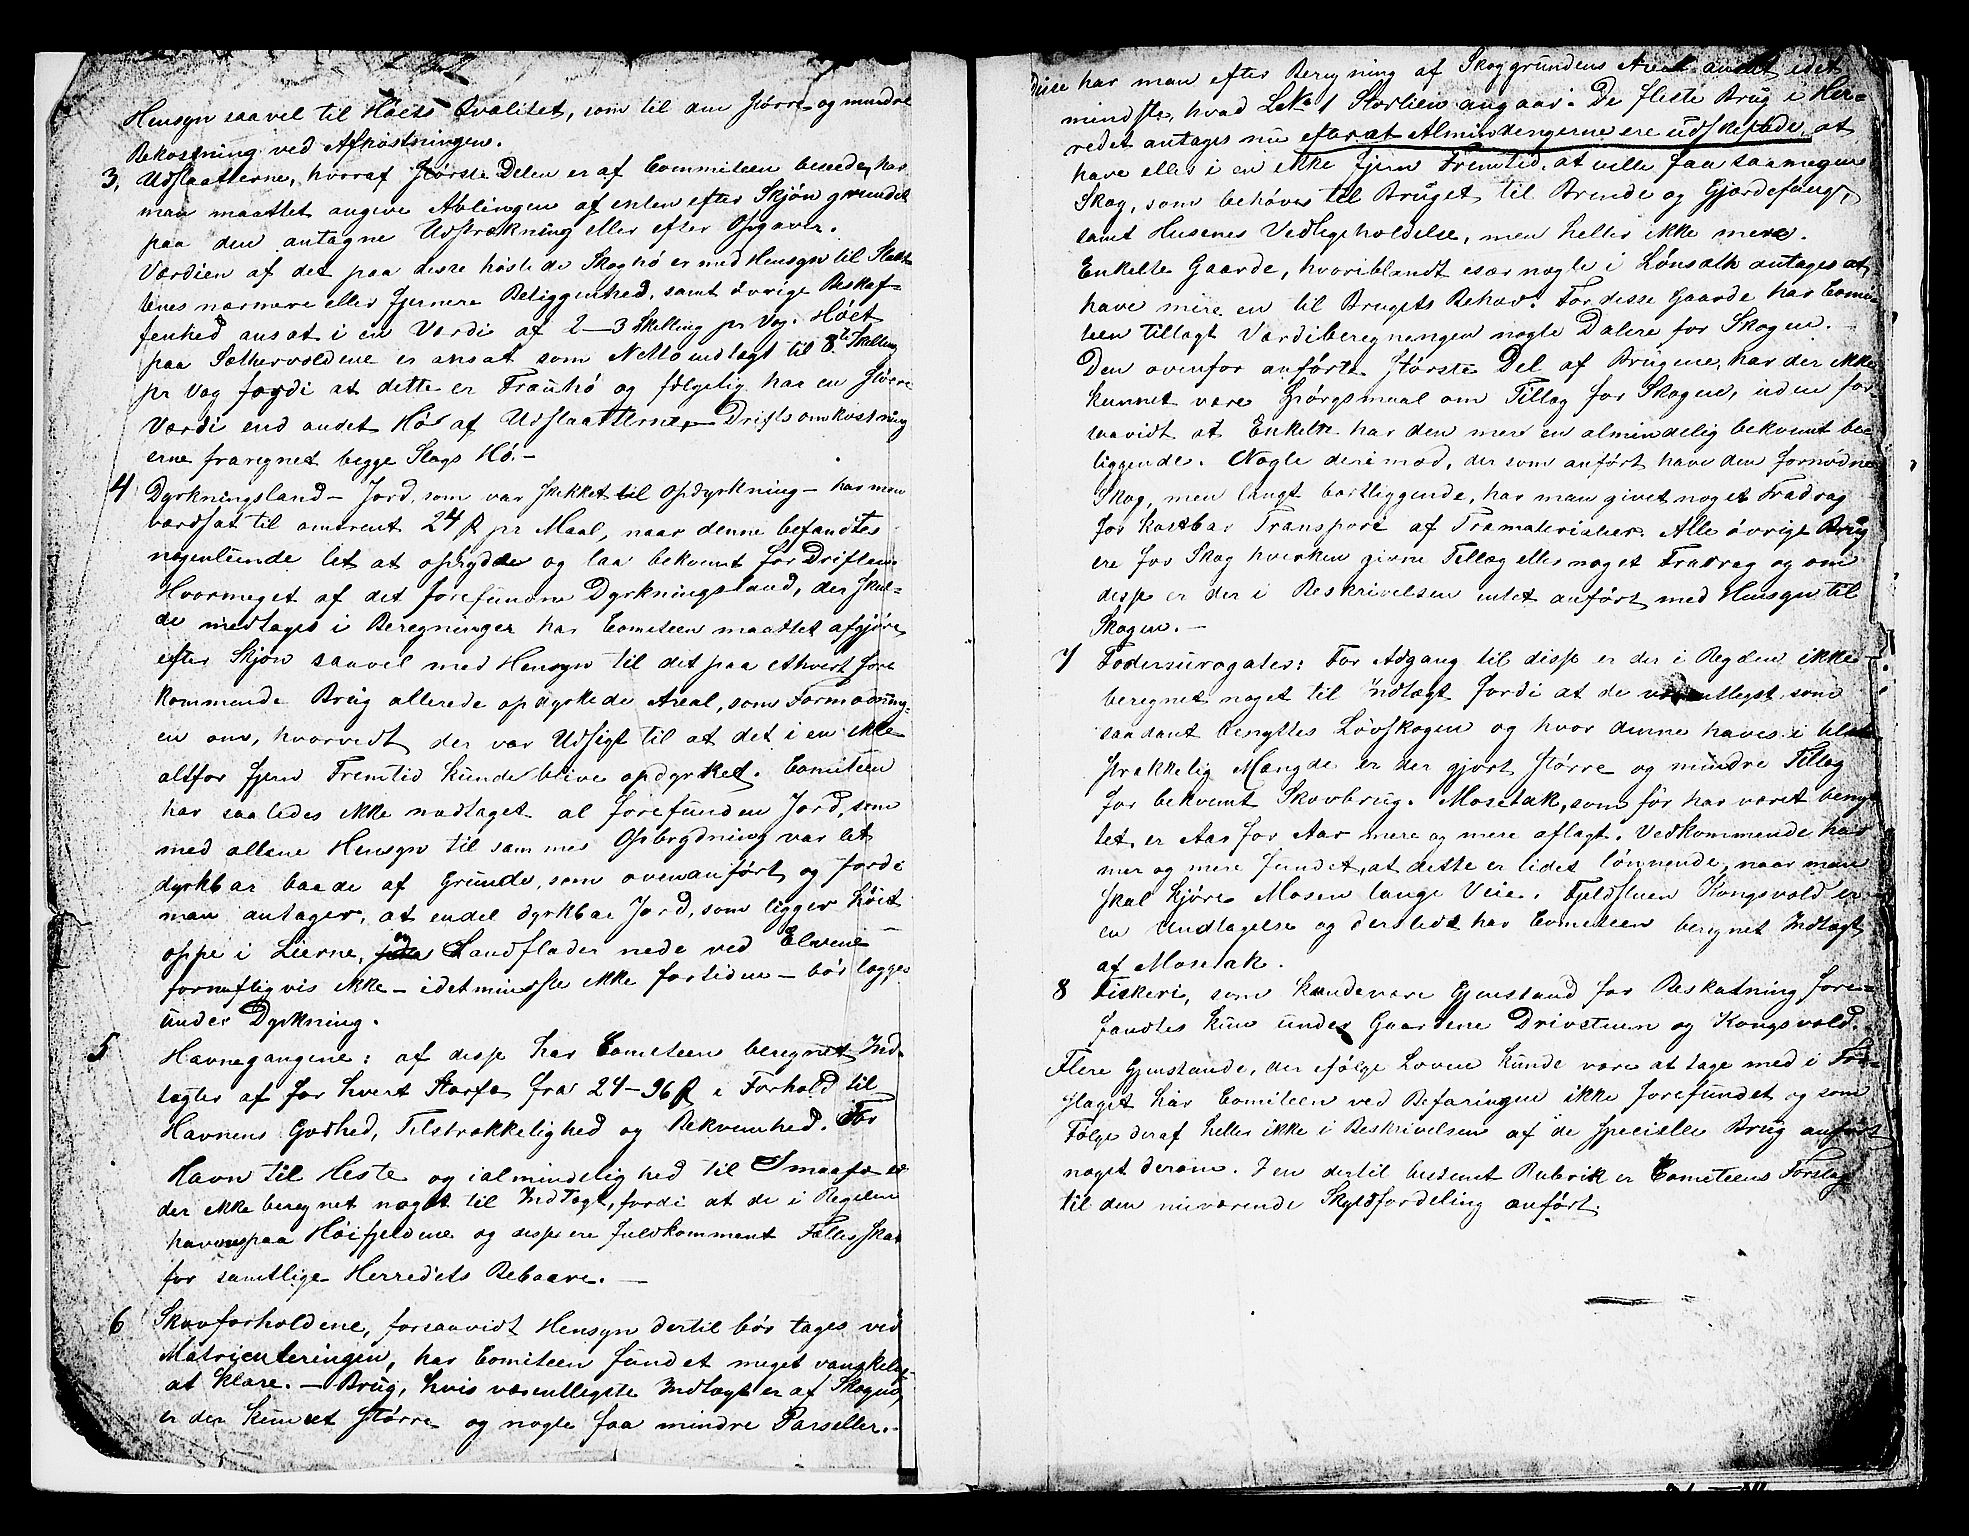 Hensyn saavel til Høets Qvalitet, som til den større og mindre
Bekostning ved Afhøstningen.
3, Udslaatterne, hvoraf største Delen er af Commiteen beseede, har
man maattet angive Avlingen af enten efter Skjøn grundet
paa den antagne Udstrækning eller efter Opgaver.
Værdien af det paa disse høstede Skoghø er med Hensyn til Slaat-
tenes nærmere eller fjernere Beliggenhed, samt øvrige Beskaf-
fenhed ansat i en Værdi af 2–3 Skilling pr Vog. Høet
paa Sæthervoldene er ansat som Netto indtægt til 8 Skilling
pr Vog fordi at dette er Trauhø og følgelig har en større
Værdi end andet Hø af Udslaatterne, – Driftsomkostning
erne fraregnet begge Slags Hø. –
4 Dyrkningsland – Jord, som var skikket til Opdyrkning – har man
værdsat til omtrent 24 ß pr Maal, naar denne befandtes
nogenlunde let at oprydde og laa bekvemt for Driften
Hvormeget af det forefundne Dyrkningsland, der skul-
de medtages i Beregninger har Comiteen maattet afgjøre
efter Skjøn saavel med Hensyn til det paa ethvert fore
kommende Brug allerede opdyrkede Areal, som Formodning-
en om, hvorvidt der var Udsigt til at det i en ikke
altfor fjern Fremtid kunde blive opdyrket. Comiteen
har saaledes ikke medtaget al forefunden Jord, som
med allene Hensyn til sammes Opbrydning var let
dyrkbar baade af Grunde, som ovenanført og fordi
man antager, at endel dyrkbar Jord, som ligger høit
oppe i Lierne, og Sandflader nede ved Elvene –
fornuftigvis ikke – idetmindste ikke fortiden – bør lægges
under Dyrkning.
5 Havnegangene: af disse har Comiteen beregnet Ind-
tægter af for hvert Storfæ fra 24–36 ß i Forhold til
Havnens Godhed, Tilstrækkelighed og Bekvemhed. For
Havn til Heste og i almindelighed til Smaafæ er
der ikke beregnet noget til Indtægt, fordi at de i Regelen
havnes paa Høifjeldene og disse ere fuldkomment Fællesskab
for samtlige Herredets Beboere. –
6 Skovforholdene, forsaavidt Hensyn dertil bør tages ved
Matriculeringen, har Comiteen fundet meget vanskelig
at klare. – Brug, hvis væsentligste Indtægt er af Skogen,
er der kun et større og nogle faa mindre Parseller. –
disse har man efter Beregning af Skoggrundens Areal andet idet
mindste, hvad LNo 1 Storlien angaar. De fleste Brug i Her-
redet antages nu efterat Almindengerne ere udskiftede, at
have eller i en ikke fjern Fremtid, at ville faa saamegen
Skog, som behøves til Bruget til Brende og Gjærdefang,
samt Husenes Vedligeholdelse, men heller ikke mere.
Enkelte Gaarde, hvoriblandt især nogle i Lønsæth antages at
have mere en til Brugets Behov. For disse Gaarde har Comi-
teen tillagt Værdiberegningen nogle Dalere for Skogen. –
Den ovenfor anførte største Del af Brugene, har der ikke
kunnet være Spørgsmaal om Tillæg for Skogen, uden for-
saavidt at Enkelte har den mere en almindelig bekvemt be-
liggende. Nogle derimod, der som anført have den fornødne
Skog, men langt bortliggende, har man givet noget Fradrag
for kostbar Transport af Træmaterialier. Alle øvrige Brug
ere for Skog hverken givne Tillæg eller noget Fradrag og om
disse er der i Beskrivelsen intet anført med Hensyn til
Skogen. –
7 Fodersurogater: For Adgang til disse er der i Regelen ikke
beregnet noget til Indtægt fordi at de væsentligst som
saadant benyttes Løvskogen og hvor denne haves i til-
strækkelig Mængde er der gjort større og mindre Tillæg
for bekvemt Skovbrug. Mosetak, som før har været benyt
tet, er Aar for Aar mere og mere aflagt. Vedkommende har
mer og mere fundet, at dette er lidet lønnende, naar man
skal kjøre Mosen lange Veie. Fjeldstuen Kongsvold er
en Undtagelse og dersteds har Comiteen beregnet Indtægt
af Mosetak.
8 Fiskeri, som kunde være Gjenstand for Beskatning fore-
fandtes kun under Gaardene Drivstuen og Kongsvold.
Flere Gjenstande, der ifølge Loven kunde være at tage med i For-
slaget har Comiteen ved Befaringen ikke forefundet og som
Følge deraf heller ikke i Beskrivelsen af de specielle Brug anført
noget derom. I en dertil bestemt Rubrik er Comiteens Forslag
til den nuværende Skyldfordeling anført.